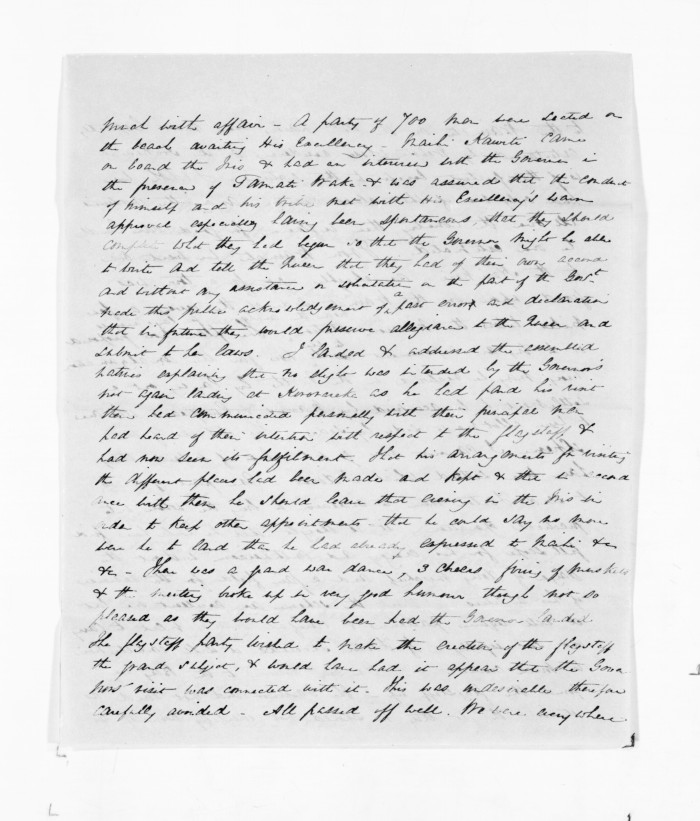 much with affair - A party of 700 men were seated on
the beach awaiting His Excellency - Maihi Kawiti came
on board the Iris & had an interview with the Governor in
the presence of Tamati Waka & was assured that the conduct
of himself and his tribe met with His Excellency's warm
approval especially having been spontaneous that they should
complete what they had begun so that the Governor might be able
to write and tell the Queen that they had of their own accord
and without any assistance or solicitation on the part of the Govt
made this public acknowledgement of a past error and declaration
that in future they would preserve allegiance to the Queen and
submit to her laws. I landed & addressed the assembled
natives explaining that no slight was intended by the Governor's
not again landing at Kororareka as he had paid his visit
there had communicated personally with their principal men
had heard of their intention with respect to the flagstaff &
had now seen its fulfilment. That his arrangements for visiting
the different places had been made and kept & that in accord
ance with them he should leave that evening in the Iris in
order to keep other appointments - that he could say no more
were he to land than he had already expressed to Maihi &c
&c - There was a grand war dance, 3 cheers, firing of muskets
& the meeting broke up in very good humour though not so
pleased as they would have been had the Governor landed.
The flagstaff party wished to make the erection of the flagstaff
the grand subject, & would have had it appear that the Gover
nors' visit was connected with it. This was undesirable therefore
carefully avoided - All passed off well. We were everywhere